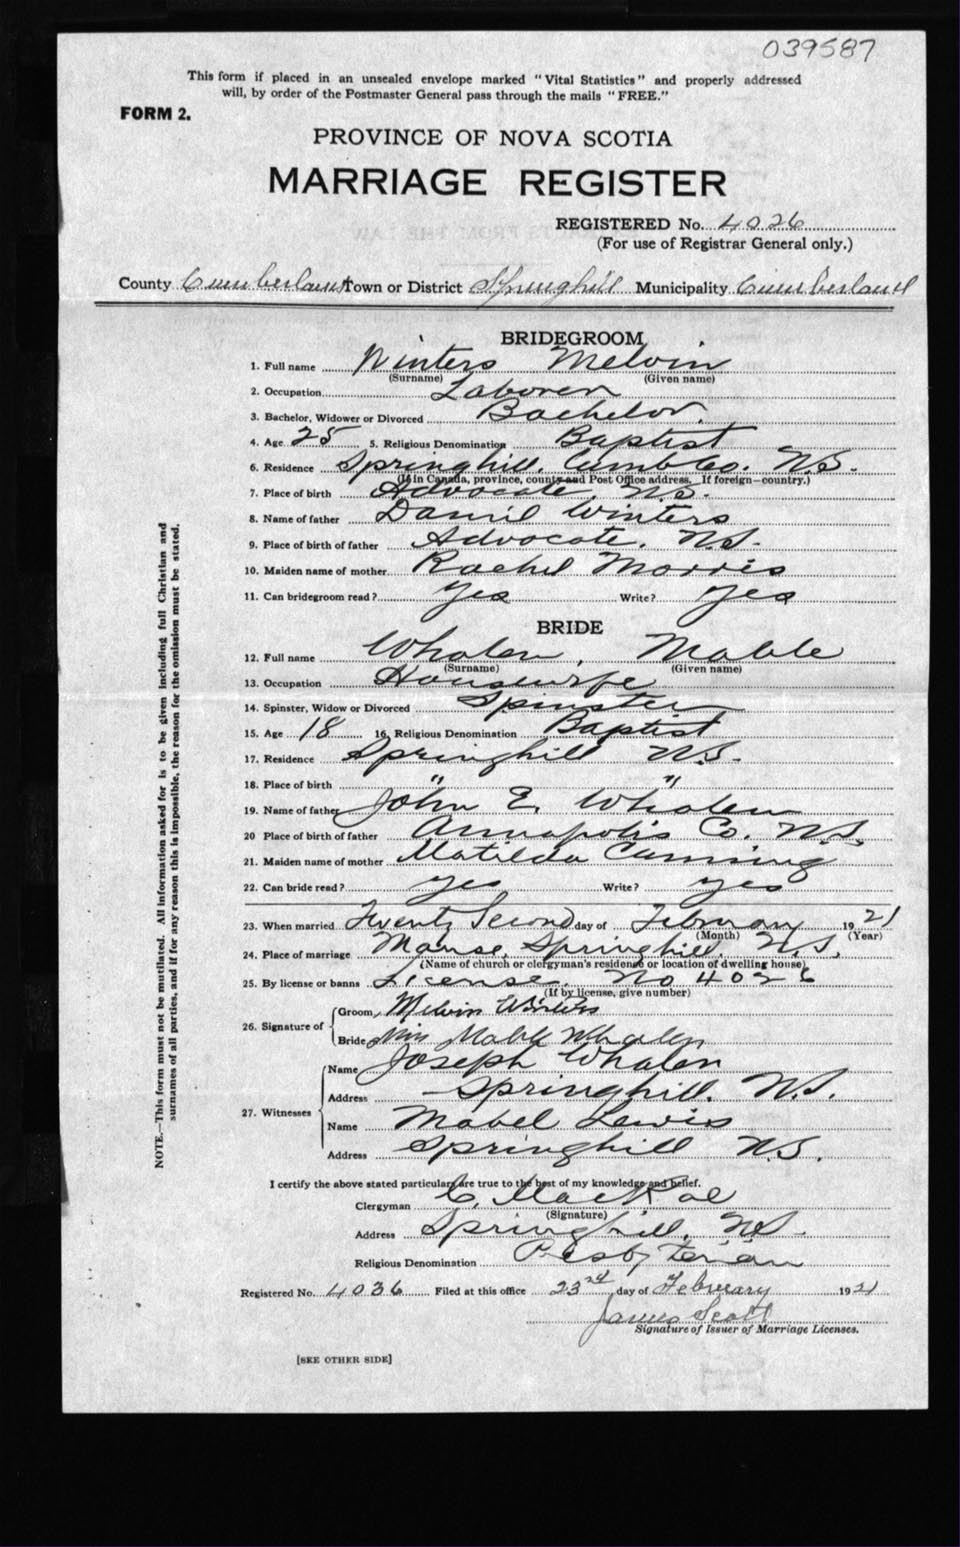 039587
This form if placed in an unsealed envelope marked "Vital Statistics" and properly addressed
will, by order of the Postmaster General pass through the mails "FREE."
FORM 2.
PROVINCE OF NOVA SCOTIA
MARRIAGE REGISTER
REGISTERED No. 4026
(For use of Registrar General only.)
County Cumberland Town or District Springhill Municipality Cumberland
BRIDEGROOM
1. Full name Winters Melvin
(Surname) (Given name)
2. Occupation Laborer
3. Bachelor, Widower or Divorced Bachelor
4. Age 25 5. Religious Denomination Baptist
6. Residence Springhill, Cumb Co. N.S.
(If in Canada, province, county and Post Office address. If foreign—country.)
7. Place of birth Advocate, N.S.
8. Name of father Daniel Winters
9. Place of birth of father Advocate, N.S.
10. Maiden name of mother Rachel Morris
11. Can bridegroom read? Yes Write? Yes
BRIDE
12. Full name Whalen, Mable
(Surname) (Given name)
13. Occupation Housewife
14. Spinster, Widow or Divorced Spinster
15. Age 18 16. Religious Denomination Baptist
17. Residence Springhill N.S.
18. Place of birth " "
19. Name of father John E. Whalen
20 Place of birth of father Annapolis Co. N.S.
21. Maiden name of mother Matilda Canning
22. Can bride read? yes Write? yes
23. When married Twenty Second day of February 1921
(Month) (Year)
24. Place of marriage Manse, Springhill, N.S.
(Name of church or clergyman's residence or location of dwelling house)
25. By license or banns License, No 4026
(If by license, give number)
26. Signature of Groom Melvin Winters
Bride Miss Mable Whalen
27. Witnesses Name Joseph Whalen
Address Springhill. N.S.
Name Mabel Lewis
Address Springhill N.S.
I certify the above stated particulars are true to the best of my knowledge and belief.
Clergyman C. MacRae
(Signature)
Address Springhill, N.S.
Religious Denomination Presbyterian
Registered No. 4036 Filed at this office 23rd day of February 1921
James Scott
Signature of Issuer of Marriage Licenses.
[SEE OTHER SIDE]
NOTE.—This form must not be mutilated. All information asked for is to be given including full Christian and
surnames of all parties, and if for any reason this is impossible, the reason for the omission must be stated.